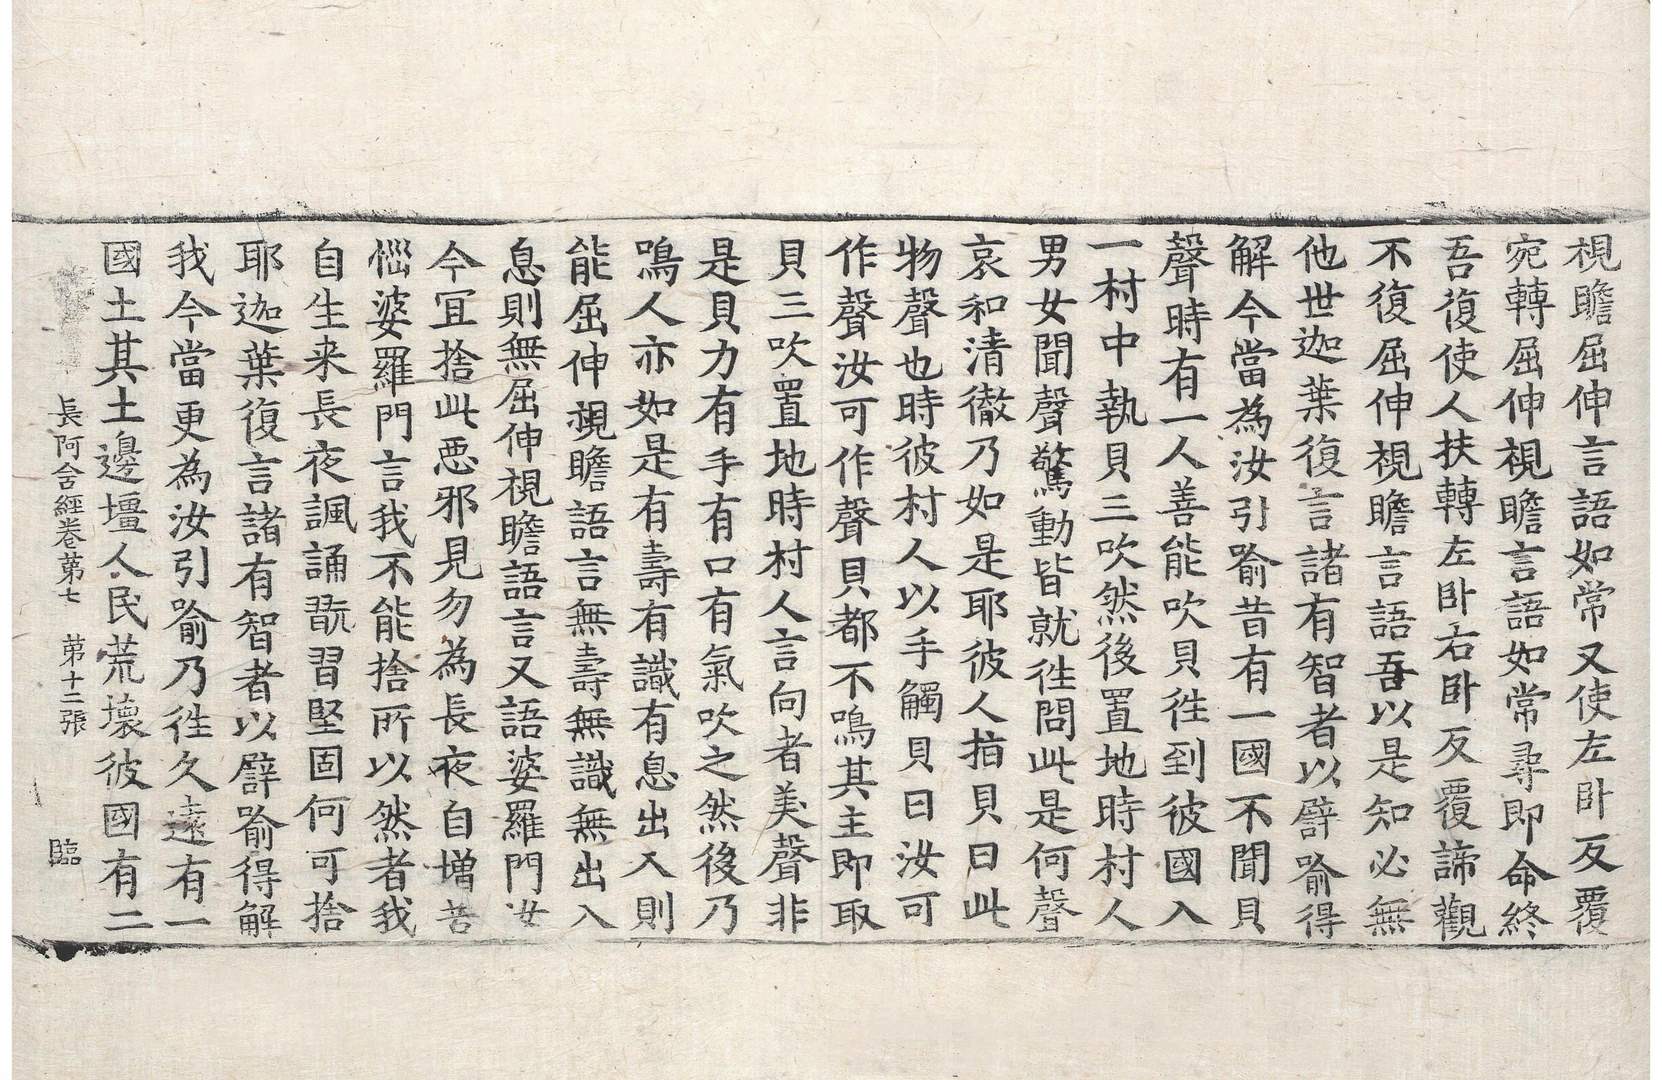 視瞻屈伸言語如常又使左卧反覆
宛轉屈伸視瞻言語如常尋即命終
吾復使人扶轉左卧右卧反覆諦觀
不復屈伸視瞻言語吾以是知必無
他世迦葉復言諸有智者以譬喻得
解今當為汝引喻昔有一國不聞貝
聲時有一人善能吹貝徃到彼國入
一村中執貝三吹然後置地時村人
男女聞聲驚動皆就徃問此是何聲
哀和清徹乃如是耶彼人指貝曰此
物聲也時彼村人以手觸貝曰汝可
作聲汝可作聲貝都不鳴其主即取
貝三吹置地時村人言向者美聲非
是貝力有手有口有氣吹之然後乃
鳴人亦如是有壽有識有息出入則
能屈伸視瞻語言無壽無識無出入
息則無屈伸視瞻語言又語婆羅門汝
今宜捨此惡邪見勿為長夜自增苦
惱婆羅門言我不能捨所以然者我
自生来長夜諷誦翫習堅固何可捨
耶迦葉復言諸有智者以譬喻得解
我今當更為汝引喻乃徃久遠有一
國土其土邊壃人民荒壞彼國有二
長阿含經卷第七 第十二張 臨